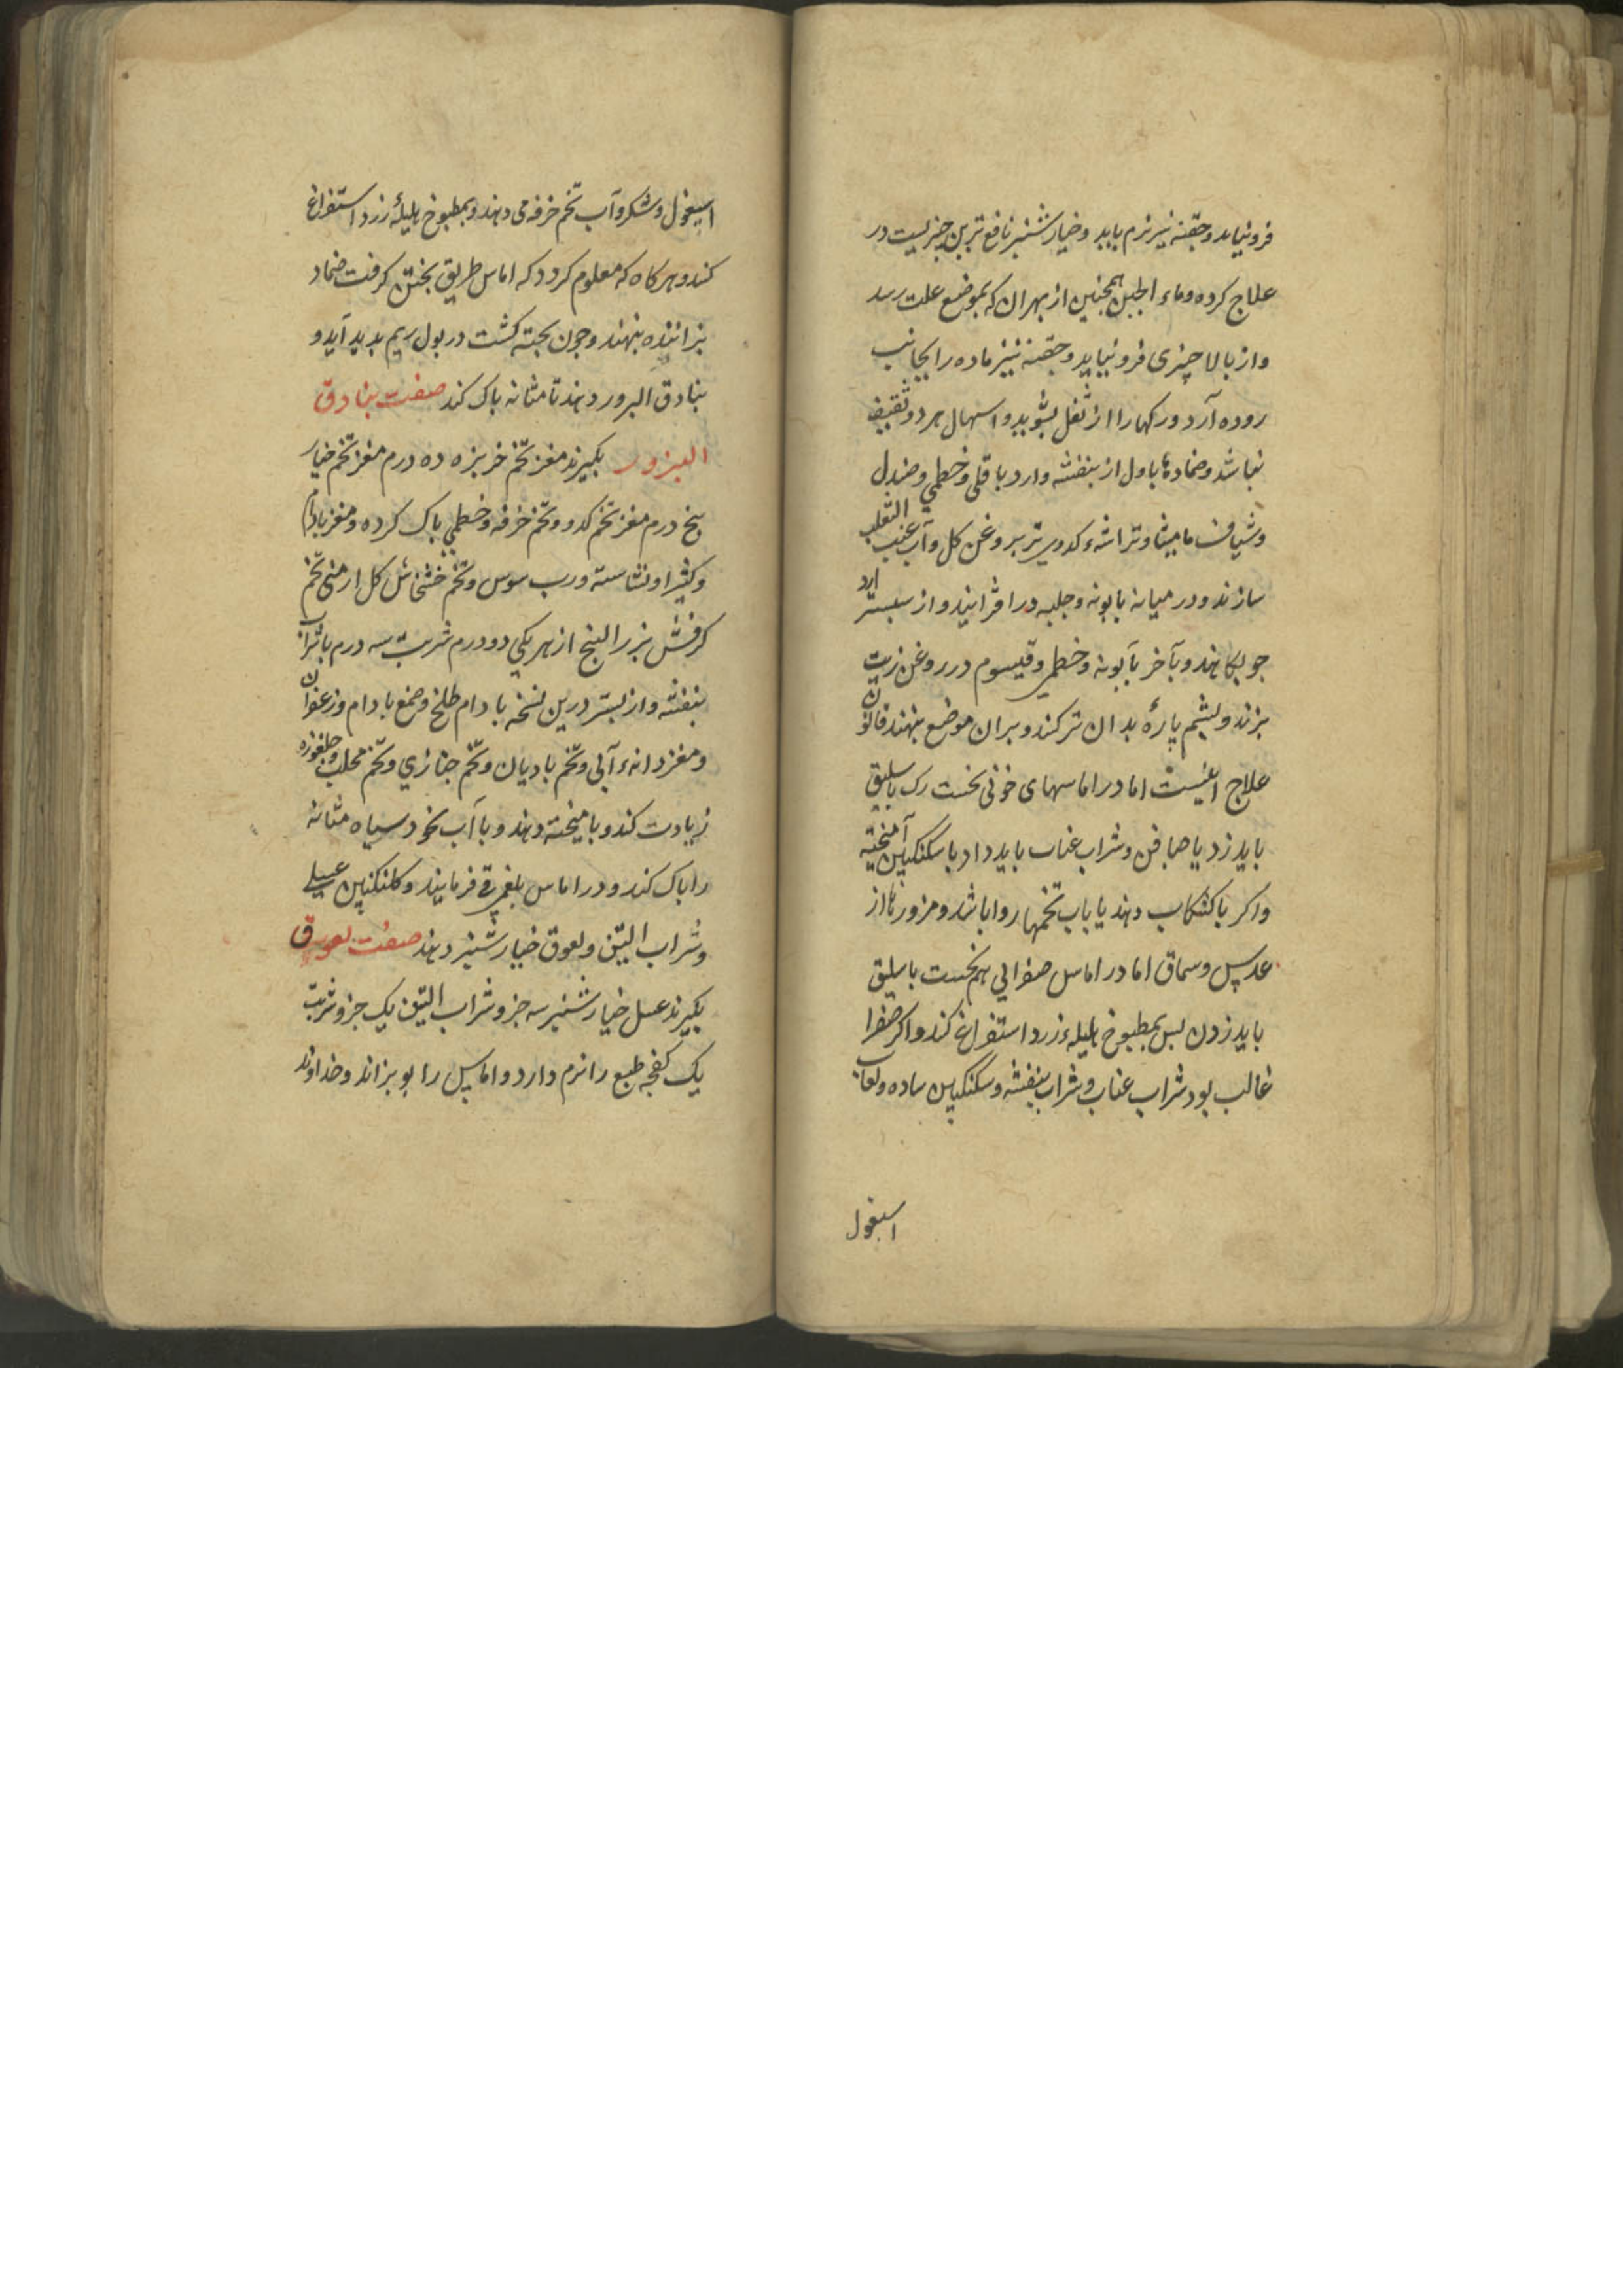 فرو نیاید و حقنه نیز نرم باید و خیار شنبر نافع ترین چیزیست در
علاج کرده و ماء الجبن همچنین از بهر آن که بموضع علت رسد
و از بالا چیزی فرو نیاید و حقنه نیز ماده را بجانب
روده آرد و رکها را از ثفل بشوید و اسهال هر دو
نباشد و ضمادها باول از بنفشه وارد باقلی و خطمی و صندل
و شیاف مامیثا و تراشهء کدوی تر بروغن کل و آب عنب الثعلب
سازند و در میانه بابونه و حلبه در افزایند و از سبستر ارد
جو بکاهند و بآخر بابونه و خطمی و قیسوم در روغن زیت
بزند و پشم پارهٔ بدان تر کنند و بران موضع بنهند قانون
علاج اینست اما در اماسهای خونی نخست رک باسلیق
باید زد یا صافن و شراب عناب باید داد با سکنکبین آمیخته
و اکر با کشکاب دهند یا باب تخمها روا باشد و مزورها از
عدس و سماق اما در اماس صفرایی هم نخست باسلیق
باید زدن بس بمطبوخ هلیلهء زرد استفراغ کند و اکر صفرا
غالب بود شراب عناب و شراب بنفشه و سکنکبین ساده و لعاب
اسبغول
اسبغول و شکر و آب تخم خرفه می دهند و بمطبوخ هلیلهٔ زرد استفراغ
کند و هر کاه که معلوم کردد که اماس طریق بختن کرفت ضماد
بزاننده بنهند و جون بخته کشت در بول ریم بدید آید و
بنادق البزور دهند تا مثانه باک کند صفت بنادق
البزور بکیرند مغز تخم خربزه ده درم مغز تخم خیار
بنج درم مغز تخم کدو و تخم خرفه و خطمی باک کرده و مغز بادام
و کثیرا و نشاسته و رب سوس و تخم خشخاش کل ارمنی تخم
کرفش بزر البنج از هر یکی دو درم شربت سه درم باشراب
بنفشه و از بستر درین نسخه بادام طلخ و صمغ بادام و زعفران
و مغز دانهء آبی و تخم بادیان و تخم خبازی و تخم محلب و جلغوزه
زیادت کند و با میخته دهند و با آب نخود سیاه مثانه
را باک کند و در اماس بلغمی قی فرمایند و کلنکبین عسلی
و شراب التین و لعوق خیار شنبر دهند صفت لعوق
بکیرند عسل خیار شنبر سه جزو شراب التین یک جزو شربت
یک کفجه طبع را نرم دارد و اماس را بوبزاند و خداوند